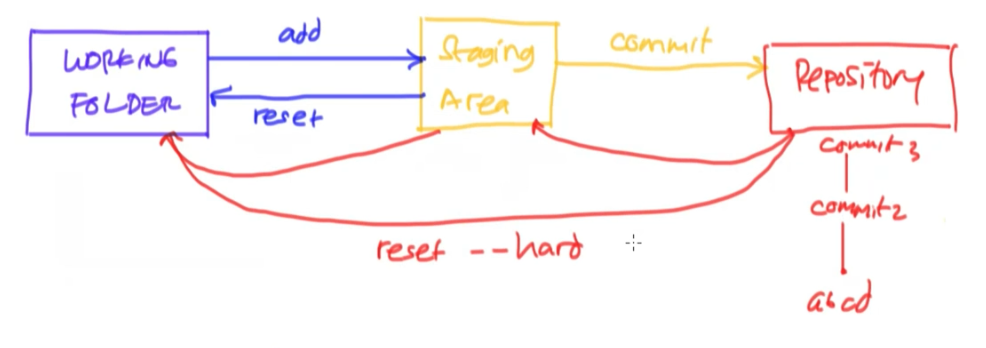 add
WORKING
FOLDER
reset
Staging
Area
commit
Repository
commit3
commit2
abcd
reset --hard